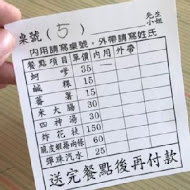 桌號(5) 先生 小姐
內用請寫桌號，外帶請寫姓氏
餐點項目 單價 內用 外帶
蚵嗲 35
蘿糕 15
番薯 15
米大腸 30
四神湯 30
炸花枝 150
脆皮蝦捲兩條 60
彈珠汽水 25
送完餐點後再付款